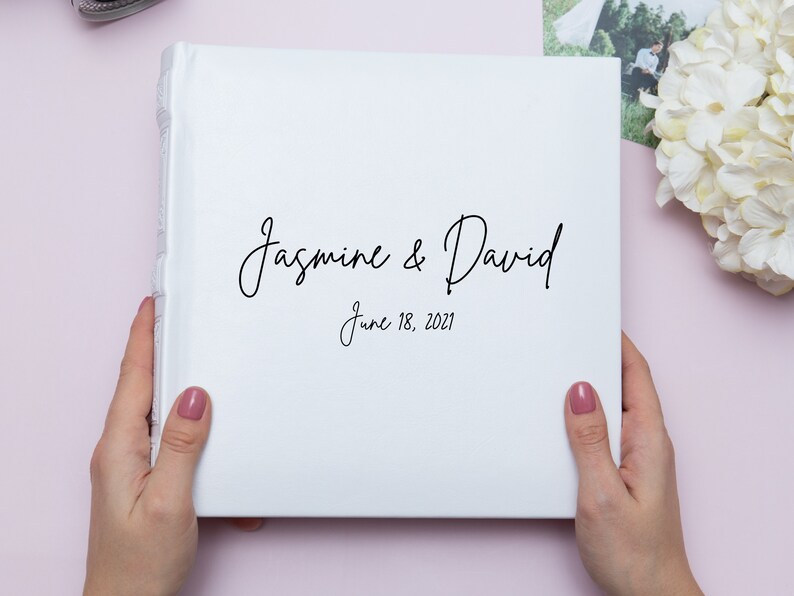 Jasmine & David
June 18, 2021